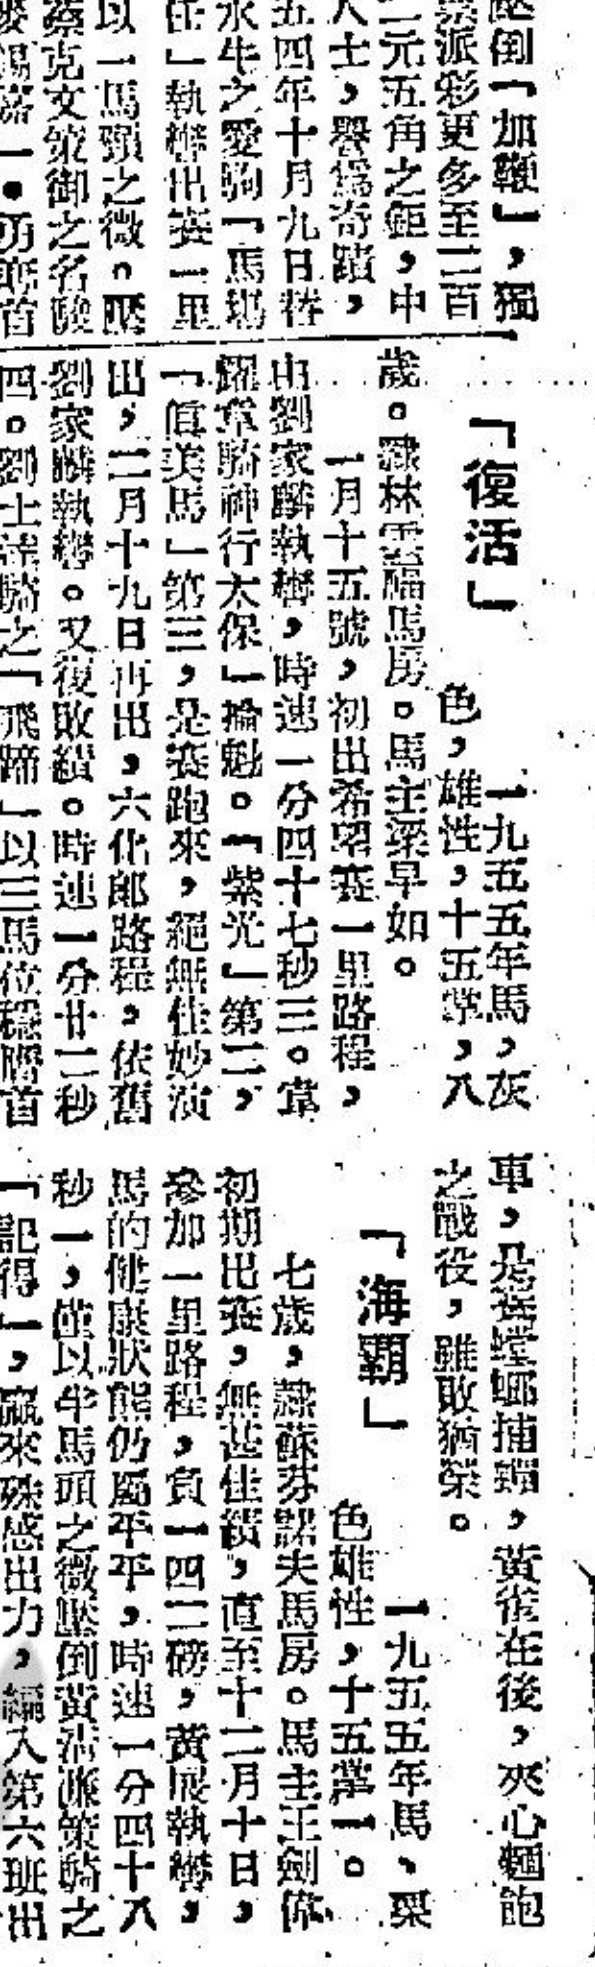 壓倒「加鞭」，獨
票派彩更多至二百
二元五角之鉅，中
人士，譽爲奇蹟，
五四年十月九日替
水牛之愛駒「馬場
任」執轡出賽一里
以一馬頸之微。壓
蔡克文策御之名駿
錫嘉」。勇奪首
「復活」
一九五五年馬，灰
色，雄性，十五掌，八
歲。隸林雲福馬房。馬主梁早如。
一月十五號，初出希昭賽一里路程，
由劉家麟執轡，時速一分四十七秒三。韋
耀章騎神行太保」掄魁。「紫光」第二，
「值美馬」第三，是賽跑來，絕無佳妙演
出，二月十九日再出，六化郎路程，依舊
劉家麟執轡。又復敗績。時速一分廿二秒
四。劉士達騎之「飛蹄」以三馬位穩膺首
車，是塲螳螂捕蟬，黃雀在後，夾心麵飽
之戰役，雖敗猶榮。
「海霸」
一九五五年馬、栗
色雄性，十五掌一。
七歲，隸蘇芬諾夫馬房。馬主王劍偉
初期出賽，無甚佳績，直至十二月十日，
參加一里路程，負一四二磅，黃展執轡，
馬的健康狀態仍屬平平，時速一分四十八
秒一，僅以半馬頭之微壓倒黃清濂策騎之
「記得」，贏來殊感出力，編入第六班出